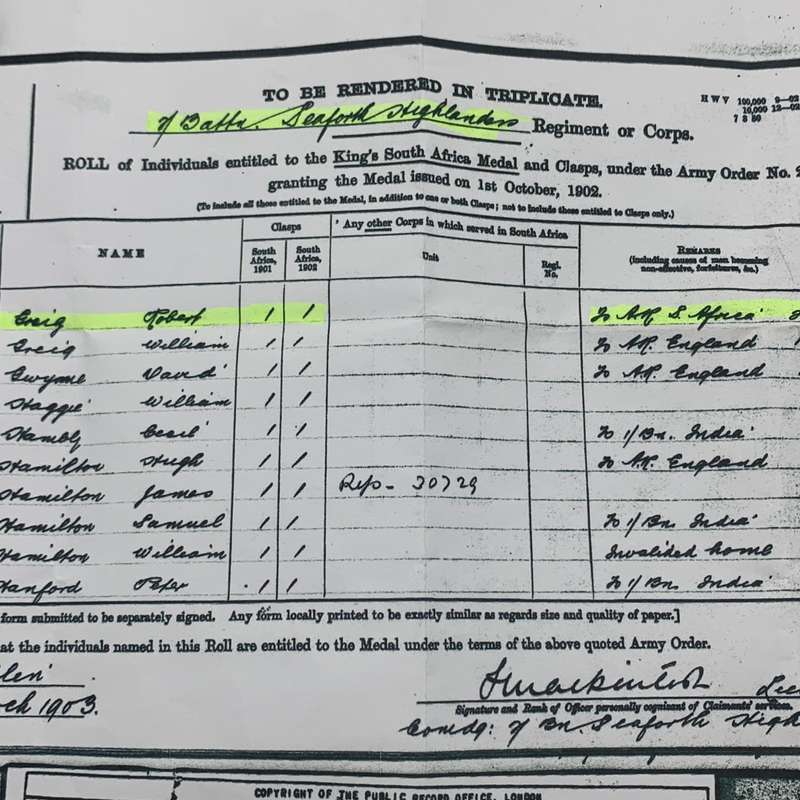 TO BE RENDERED IN TRIPLICATE.
H W V 100,000 9—02
10,000 12—02
Battn. Seaforth Highlanders Regiment or Corps.
ROLL of Individuals entitled to the King's South Africa Medal and Clasps, under the Army Order No.
granting the Medal issued on 1st October, 1902.
(To include all those entitled to the Medal, in addition to one or both Clasps; not to include those entitled to Clasps only.)
NAME
Clasps
South Africa, 1901
South Africa, 1902
Any other Corps in which served in South Africa
Unit
Regl. No.
REMARKS
(including causes of men becoming non-effective, forfeitures, &c.)
Greig Robert / / To A.R. S. Africa
Greig William / / To A.R. England
Gwynne David / / To A.R. England
Haggie William / /
Hambly Cecil / / To 1/Bn. India
Hamilton Hugh / / To A.R. England
Hamilton James / /
Hamilton Samuel / / To 1/Bn. India
Hamilton William / / Invalided home
Hanford Peter / / To 1/Bn. India
form submitted to be separately signed. Any form locally printed to be exactly similar as regards size and quality of paper.]
at the individuals named in this Roll are entitled to the Medal under the terms of the above quoted Army Order.
1903.
Mackintosh
Signature and Rank of Officer personally cognizant of Claimants' services.
Comdg: Bn. Seaforth High
COPYRIGHT OF THE PUBLIC RECORD OFFICE, LONDON